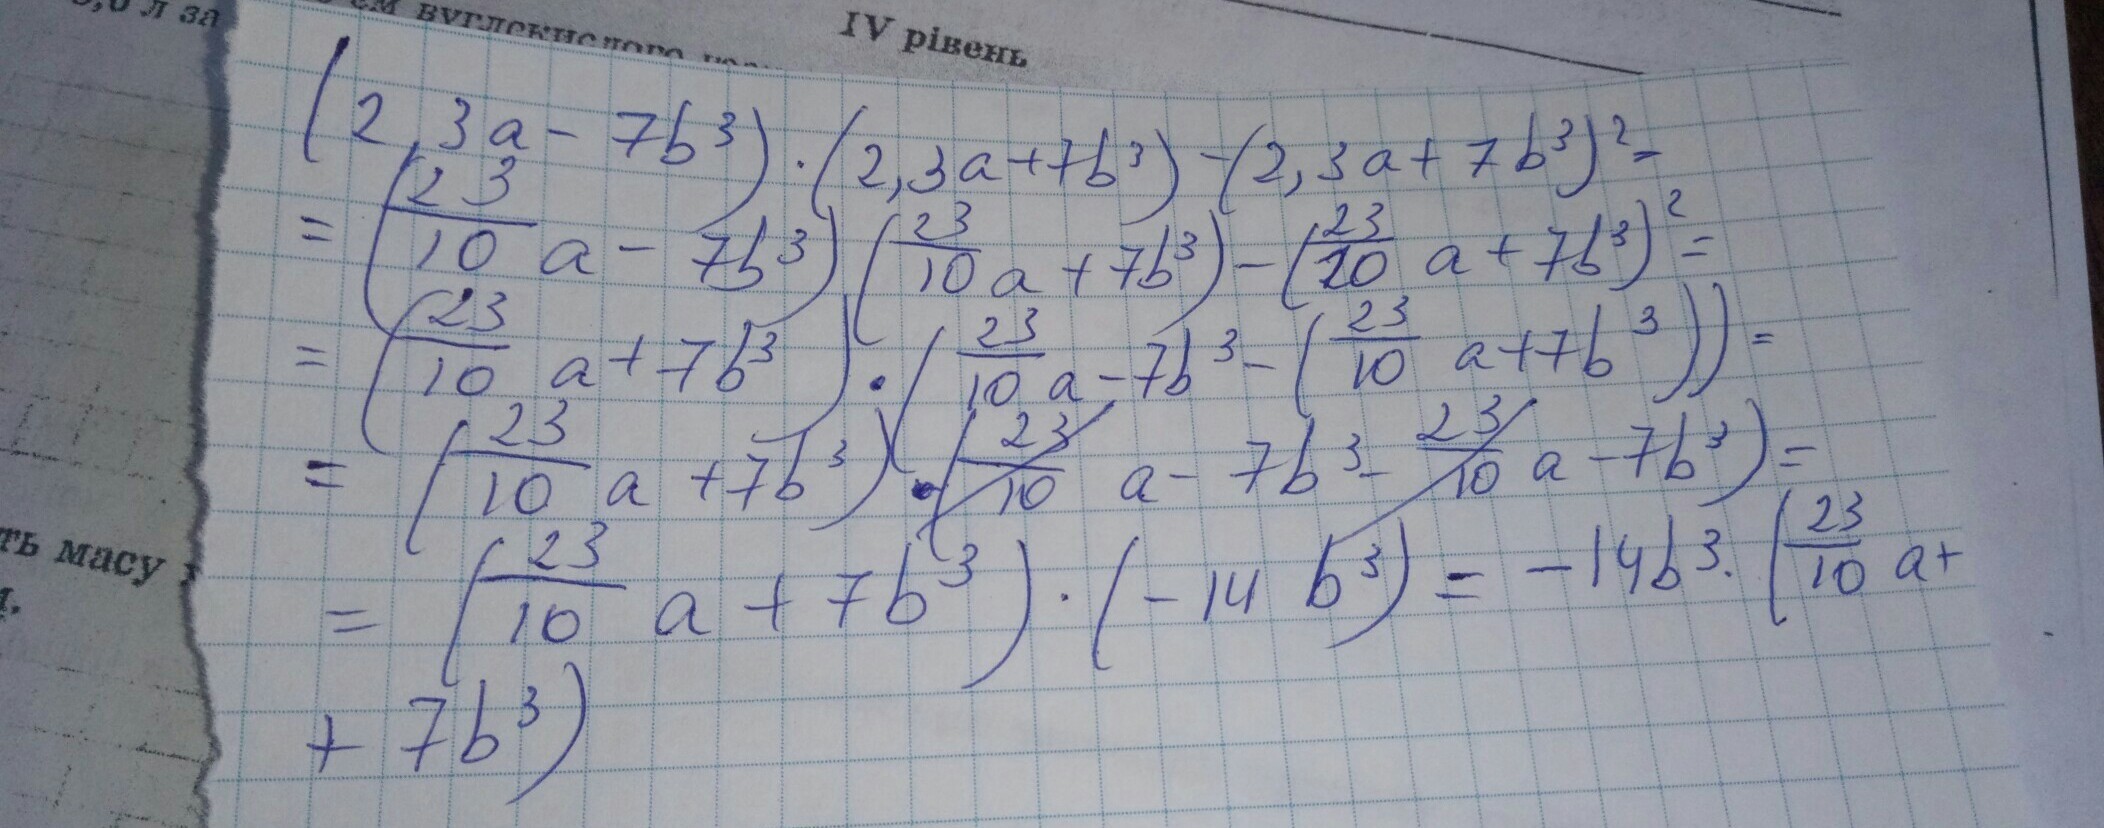 л за
вуглекислого
IV рівень
ть масу
(2,3a - 7b³) · (2,3a + 7b³) - (2,3a + 7b³)² =
= (23/10 a - 7b³) (23/10 a + 7b³) - (23/10 a + 7b³)² =
= (23/10 a + 7b³) · (23/10 a - 7b³ - (23/10 a + 7b³)) =
= (23/10 a + 7b³) · (23/10 a - 7b³ - 23/10 a - 7b³) =
= (23/10 a + 7b³) · (-14 b³) = -14b³ · (23/10 a +
+ 7b³)